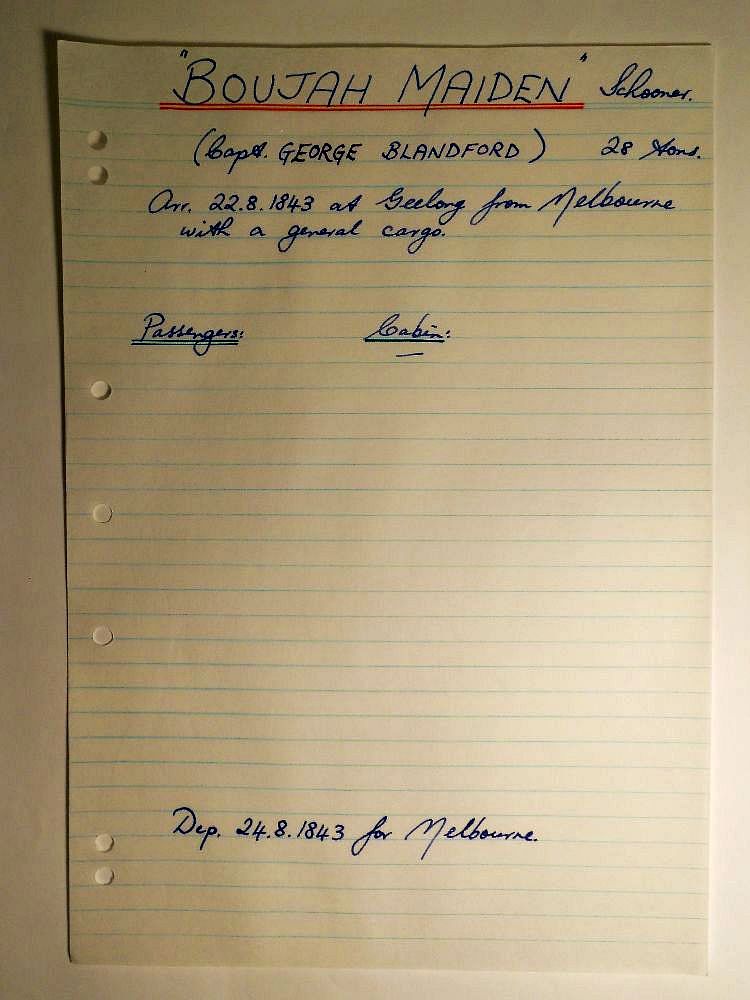 "BOUJAH MAIDEN" Schooner.
(Capt. GEORGE BLANDFORD) 28 tons.
Arr. 22.8.1843 at Geelong from Melbourne
with a general cargo.
Passengers: Cabin:
—
Dep. 24.8.1843 for Melbourne.